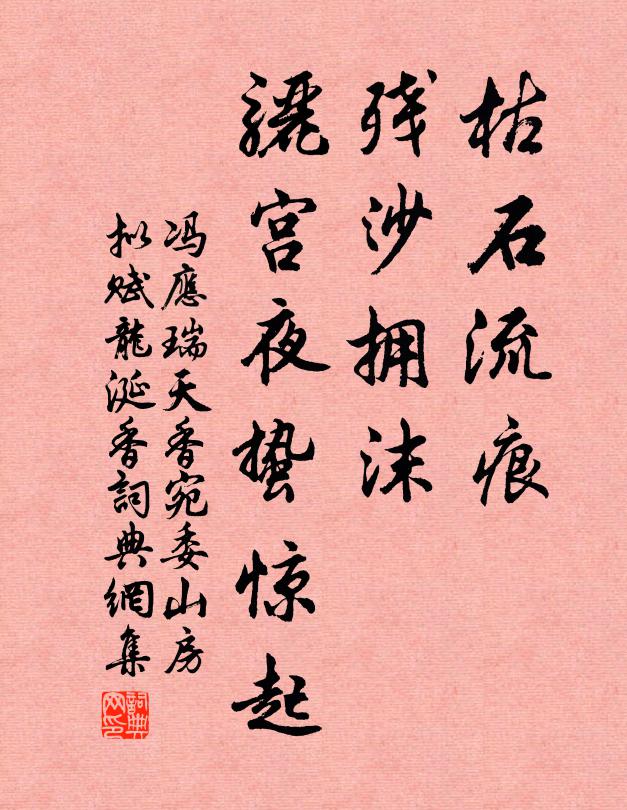 枯石流痕
残沙拥沫
骊宫夜蛰惊起
冯應瑞天香宛委山房
拟赋龍涎香詞典網集
詞典网印